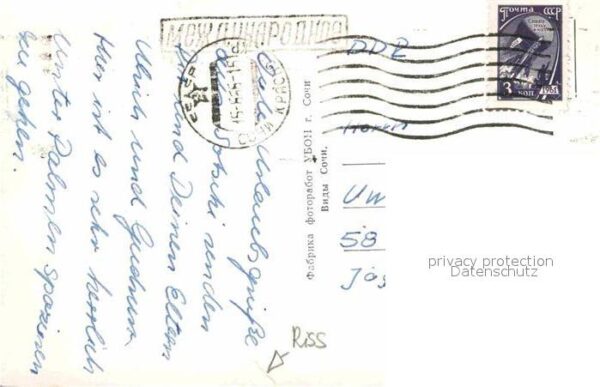 МЕЖДУНАРОДНОЕ
ПОЧТА СССР
3 КОП 1961
DDR
Herrn
Uw
58
privacy protection
Datenschutz
Фабрика фоторабот УБОН г. Сочи
Виды Сочи.
Riss
Urlaubsgrüße
senden
und Deinen Eltern
Ulrich und Gudrun.
Hier ist es sehr herrlich
unter Palmen spazieren
zu gehen.